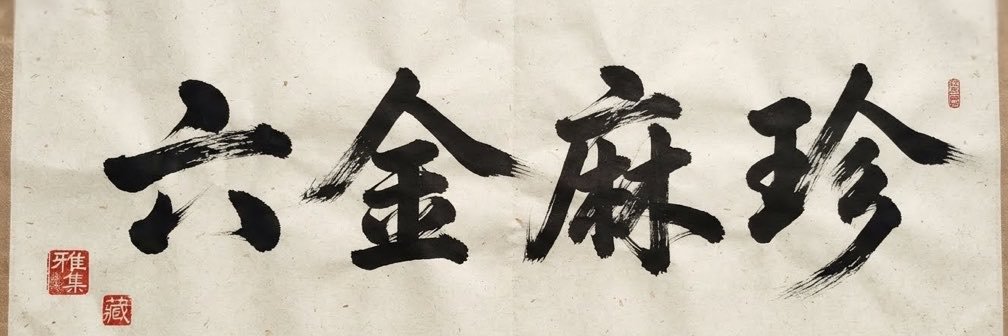 珍麻金六
雅集
藏